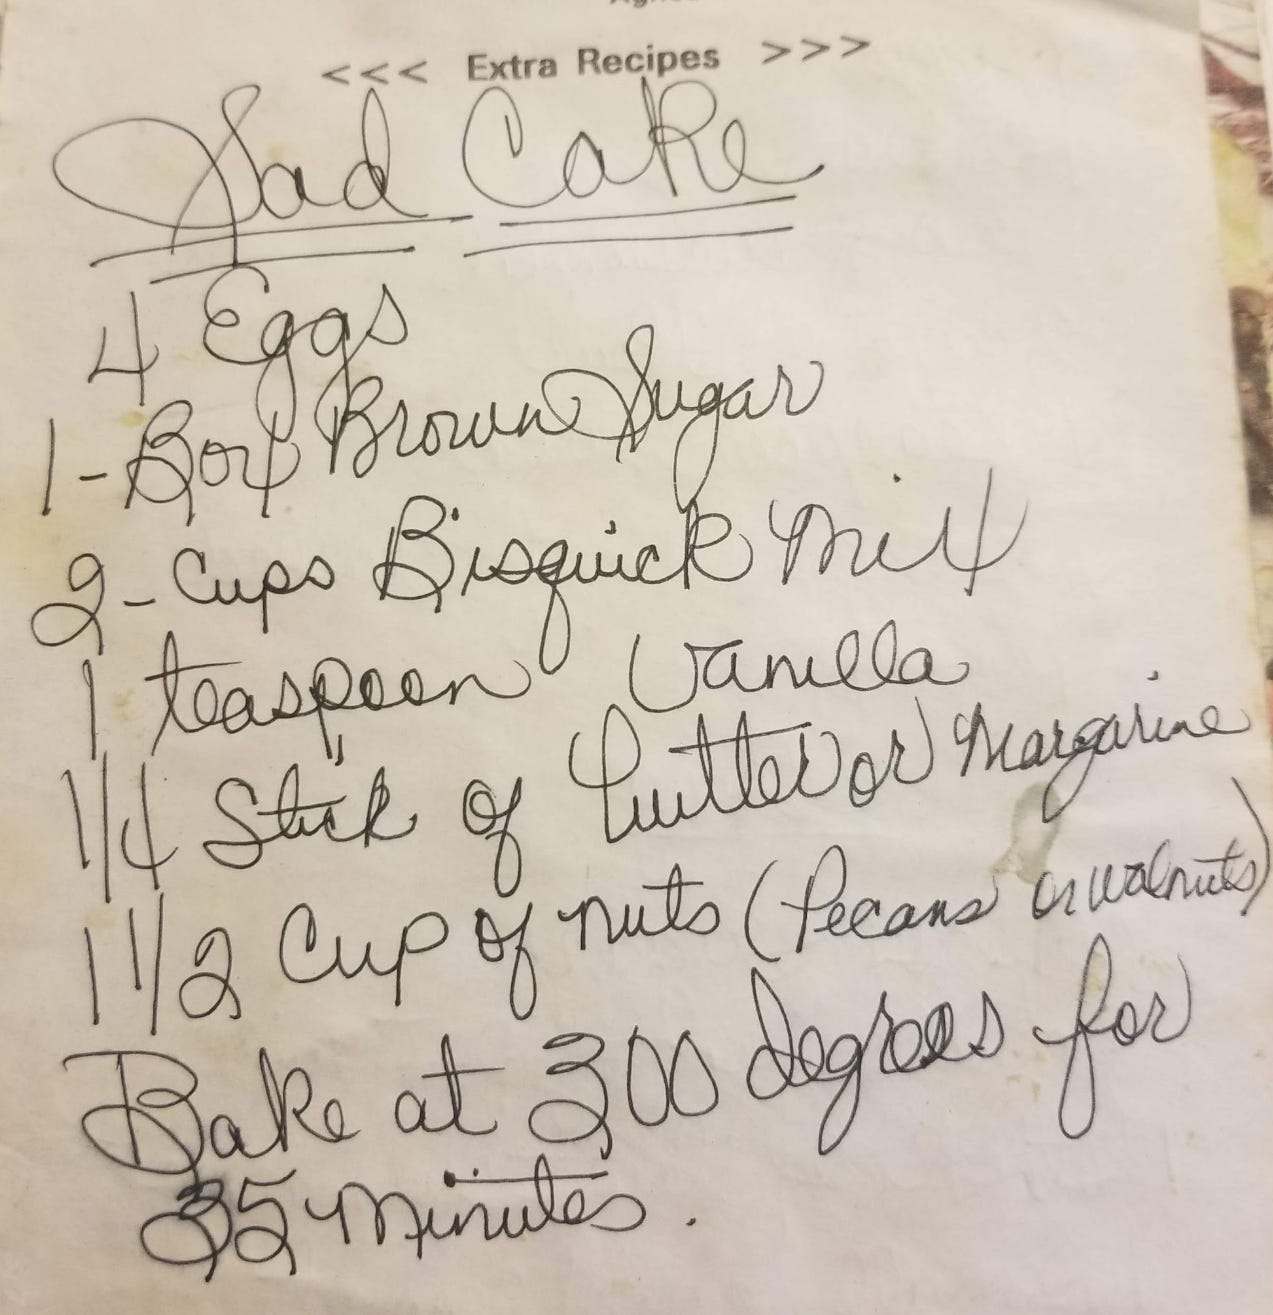 <<< Extra Recipes >>>
Sad Cake
4 Eggs
1-Box Brown Sugar
2-Cups Bisquick Mix
1 teaspoon Vanilla
1/4 Stick of butter or Margarine
1 1/2 Cup of nuts (Pecans or walnuts)
Bake at 300 degrees for
35 Minutes.